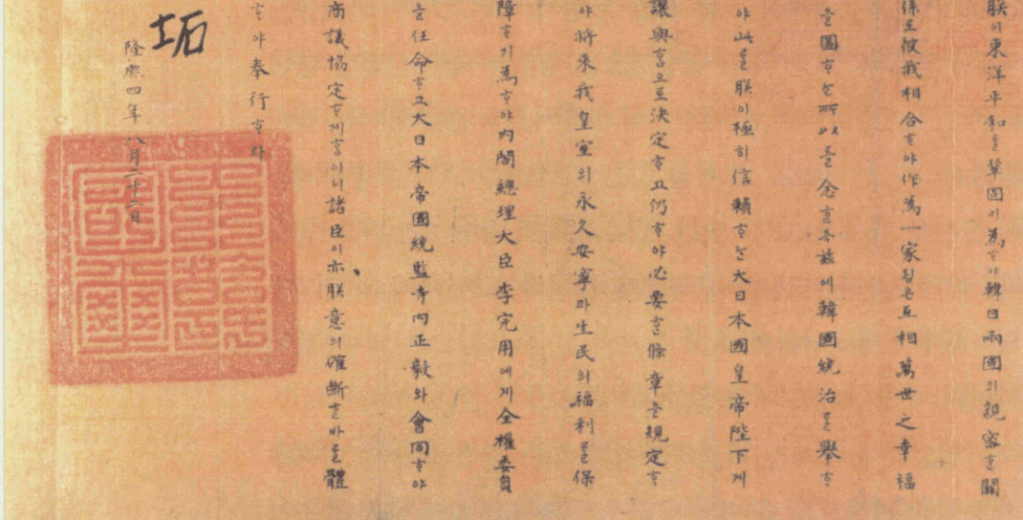 朕이東洋平和를鞏固이爲ᄒᆞ야韓日兩國의親密ᄒᆞᆫ關
係로彼我相合ᄒᆞ야作爲一家ᄒᆞᆷ은互相萬世之幸福
을圖ᄒᆞᄂᆞᆫ所以를念ᄒᆞᆫ즉玆에韓國統治를擧ᄒᆞ
야此를朕이極히信賴ᄒᆞᄂᆞᆫ大日本國皇帝陛下게
讓與ᄒᆞᆷ으로決定ᄒᆞ고仍ᄒᆞ야必要ᄒᆞᆫ條章을規定ᄒᆞ
야將來我皇室의永久安寧과生民의福利를保
障ᄒᆞ기爲ᄒᆞ야內閣總理大臣李完用에게全權委員
을任命ᄒᆞ고大日本帝國統監寺內正毅와會同ᄒᆞ야
商議協定ᄒᆞ게ᄒᆞᆷ이니諸臣이亦朕意의確斷ᄒᆞᆫ바를體
ᄒᆞ야奉行ᄒᆞ라
坧
隆熙四年八月二十二日